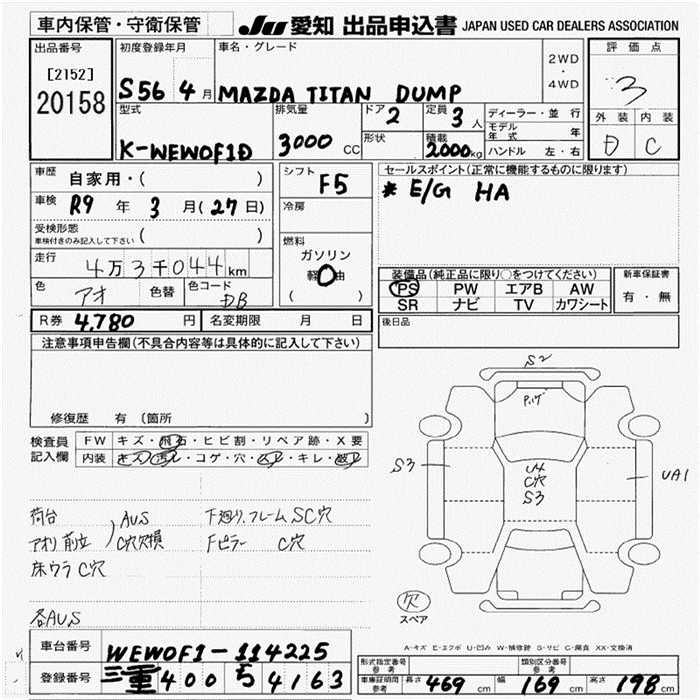 車内保管・守衛保管
JU 愛知 出品申込書 JAPAN USED CAR DEALERS ASSOCIATION
出品番号
[2152]
20158
初度登録年月
S56 4月
車名・グレード
MAZDA TITAN DUMP
2WD
・
4WD
評価点
3
外装 内装
D C
型式
K-WEW0F1D
排気量
3000 CC
ドア
2
定員
3人
形状
積載
2000kg
ディーラー・並行
モデル年式 年
ハンドル 左・右
車歴 自家用・( )
車検 R9 年 3 月(27日)
受検形態
車検付きのみ記入して下さい ( )
走行
4万3千044km
色 アオ 色替 色コード DB
シフト
F5
冷房
燃料
ガソリン
軽油
( )
セールスポイント(正常に機能するものに限ります)
* E/G HA
装備品(純正品に限り○をつけてください)
PS PW エアB AW
SR ナビ TV カワシート
新車保証書
有・無
後日品
R券 4,780 円 名変期限 月 日
注意事項申告欄(不具合内容等は具体的に記入して下さい)
修復歴 有 (箇所 )
検査員
記入欄
FW キズ・飛石・ヒビ割・リペア跡・X要
内装 キズ・汚れ・コゲ・穴・スレ・キレ・破れ
荷台
アオリ 前立
AUS
C穴欠損
床ウラ C穴
下廻り、フレーム SC穴
Fピラー C穴
各AUS
S2
S3
U4
C穴
S3
UA1
欠
スペア
A-キズ E-エクボ U-凹み W-補修跡 S-サビ C-腐食 XX-交換済
車台番号 WEW0F1-114225
登録番号 三重 400 ち 4163
形式指定番号
参考
類別区分番号
参考
車庫証明用
参考
長さ 469 cm 幅 169 cm 高さ 198 cm